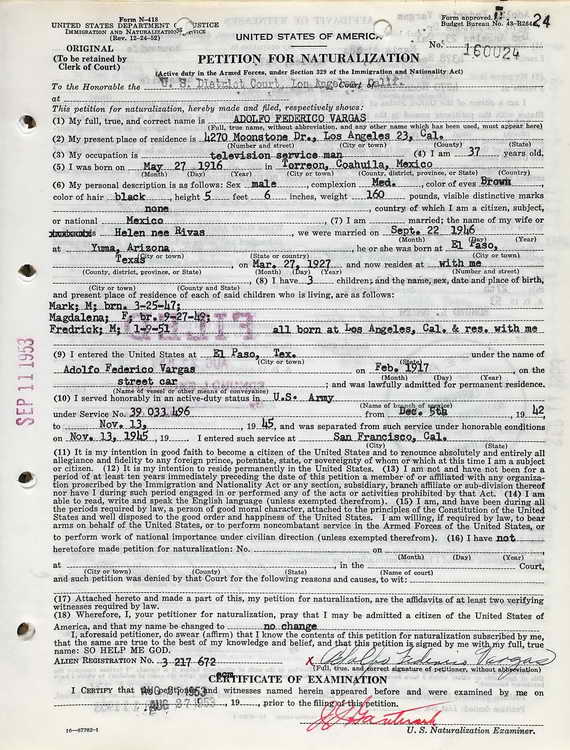 Form N-418
UNITED STATES DEPARTMENT OF JUSTICE
IMMIGRATION AND NATURALIZATION SERVICE
(Rev. 12-24-52)
Form approved.
Budget Bureau No. 43-R264
24
ORIGINAL
(To be retained by
Clerk of Court)
UNITED STATES OF AMERICA
No. 160024
PETITION FOR NATURALIZATION
(Active duty in the Armed Forces, under Section 329 of the Immigration and Nationality Act)
To the Honorable the U. S. District Court, Los Angeles, Calif.
at
This petition for naturalization, hereby made and filed, respectively shows:
(1) My full, true, and correct name is ADOLFO FEDERICO VARGAS
(Full, true name, without abbreviation, and any other name which has been used, must appear here)
(2) My present place of residence is 4270 Moonstone Dr., Los Angeles 23, Cal.
(Number and street) (City or town) (County) (State)
(3) My occupation is television service man (4) I am 37 years old.
(5) I was born on May 27 1916 in Torreon, Coahuila, Mexico
(Month) (Day) (Year) (City or town) (County, district, province, or State) (Country)
(6) My personal description is as follows: Sex male, complexion Med., color of eyes Brown,
color of hair black, height 5 feet 6 inches, weight 160 pounds, visible distinctive marks
none country of which I am a citizen, subject,
or national Mexico (7) I am married; the name of my wife or
Helen nee Rivas, we were married on Sept. 22 1946
(Month) (Day) (Year)
at Yuma, Arizona he or she was born at El Paso,
(City or town) (State or country)
Texas, on Mar. 27, 1927 and now resides at with me
(County, district, province, or State) (Country) (Month) (Day) (Year) (Number and street)
(City or town) (County and State) , (8) I have 3 children; and the name, sex, date and place of birth,
and present place of residence of each of said children who is living, are as follows:
Mark; M; brn. 3-25-47;
Magdalena; F; br. 9-27-49;
Fredrick; M; 1-9-51 all born at Los Angeles, Cal. & res. with me
FILED
SEP 11 1953
(9) I entered the United States at El Paso, Tex. under the name of
(City or town) (State)
Adolfo Federico Vargas on Feb. 1917, on the
(Month) (Day) (Year)
street car; and was lawfully admitted for permanent residence.
(Name of vessel or other means of conveyance)
(10) I served honorably in an active-duty status in U.S. Army
(Name of branch of service)
under Service No. 39 033 496 from Dec. 5th, 19 42
to Nov. 13, 19 45, and was separated from such service under honorable conditions
on Nov. 13, 1945, 19 . I entered such service at San Francisco, Cal.
(City) (State)
(11) It is my intention in good faith to become a citizen of the United States and to renounce absolutely and entirely all
allegiance and fidelity to any foreign prince, potentate, state, or sovereignty of whom or which at this time I am a subject
or citizen. (12) It is my intention to reside permanently in the United States. (13) I am not and have not been for a
period of at least ten years immediately preceding the date of this petition a member of or affiliated with any organiza-
tion proscribed by the Immigration and Nationality Act or any section, subsidiary, branch affiliate or sub-division thereof
nor have I during such period engaged in or performed any of the acts or activities prohibited by that Act. (14) I am
able to read, write and speak the English language (unless exempted therefrom). (15) I am, and have been during all
the periods required by law, a person of good moral character, attached to the principles of the Constitution of the United
States and well disposed to the good order and happiness of the United States. I am willing, if required by law, to bear
arms on behalf of the United States, or to perform noncombatant service in the Armed Forces of the United States, or
to perform work of national importance under civilian direction (unless exempted therefrom). (16) I have not
heretofore made petition for naturalization: No. on
(Month) (Day) (Year)
at , in the Court,
(City or town) (County) (State) (Name of court)
and such petition was denied by that Court for the following reasons and causes, to wit:
(17) Attached hereto and made a part of this, my petition for naturalization, are the affidavits of at least two verifying
witnesses required by law.
(18) Wherefore, I, your petitioner for naturalization, pray that I may be admitted a citizen of the United States of
America, and that my name be changed to no change
I, aforesaid petitioner, do swear (affirm) that I know the contents of this petition for naturalization subscribed by me,
that the same are true to the best of my knowledge and belief, and that this petition is signed by me with my full, true
name: SO HELP ME GOD.
ALIEN REGISTRATION NO. 3 217 672
x Adolfo Federico Vargas
(Full, true, and correct signature of petitioner, without abbreviation)
CERTIFICATE OF EXAMINATION
I CERTIFY that the petitioner and witnesses named herein appeared before and were examined by me on
AUG 27 1953, 19 , prior to the filing of this petition.
16-67762-1
U. S. Naturalization Examiner.